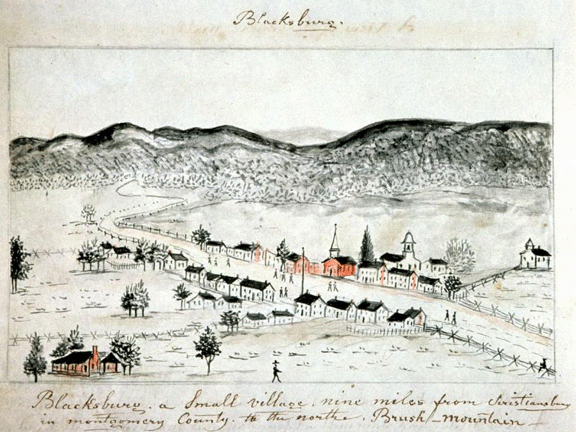 Blacksburg.
Blacksburg. a Small village. nine miles from Christiansburg
in montgomery County. to the north. Brush mountain